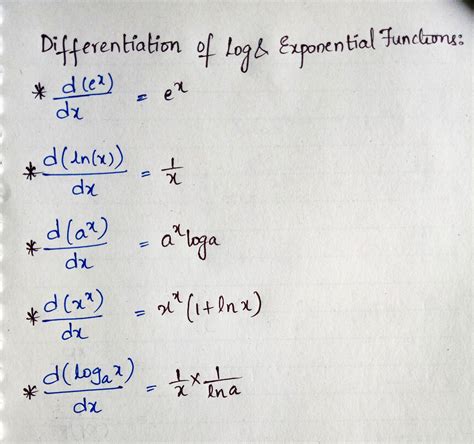 Differentiation of Log & Exponential Functions:
* d(e^x)/dx = e^x
* d(ln(x))/dx = 1/x
* d(a^x)/dx = a^x loga
* d(x^x)/dx = x^x (1+lnx)
* d(log_a x)/dx = 1/x × 1/lna